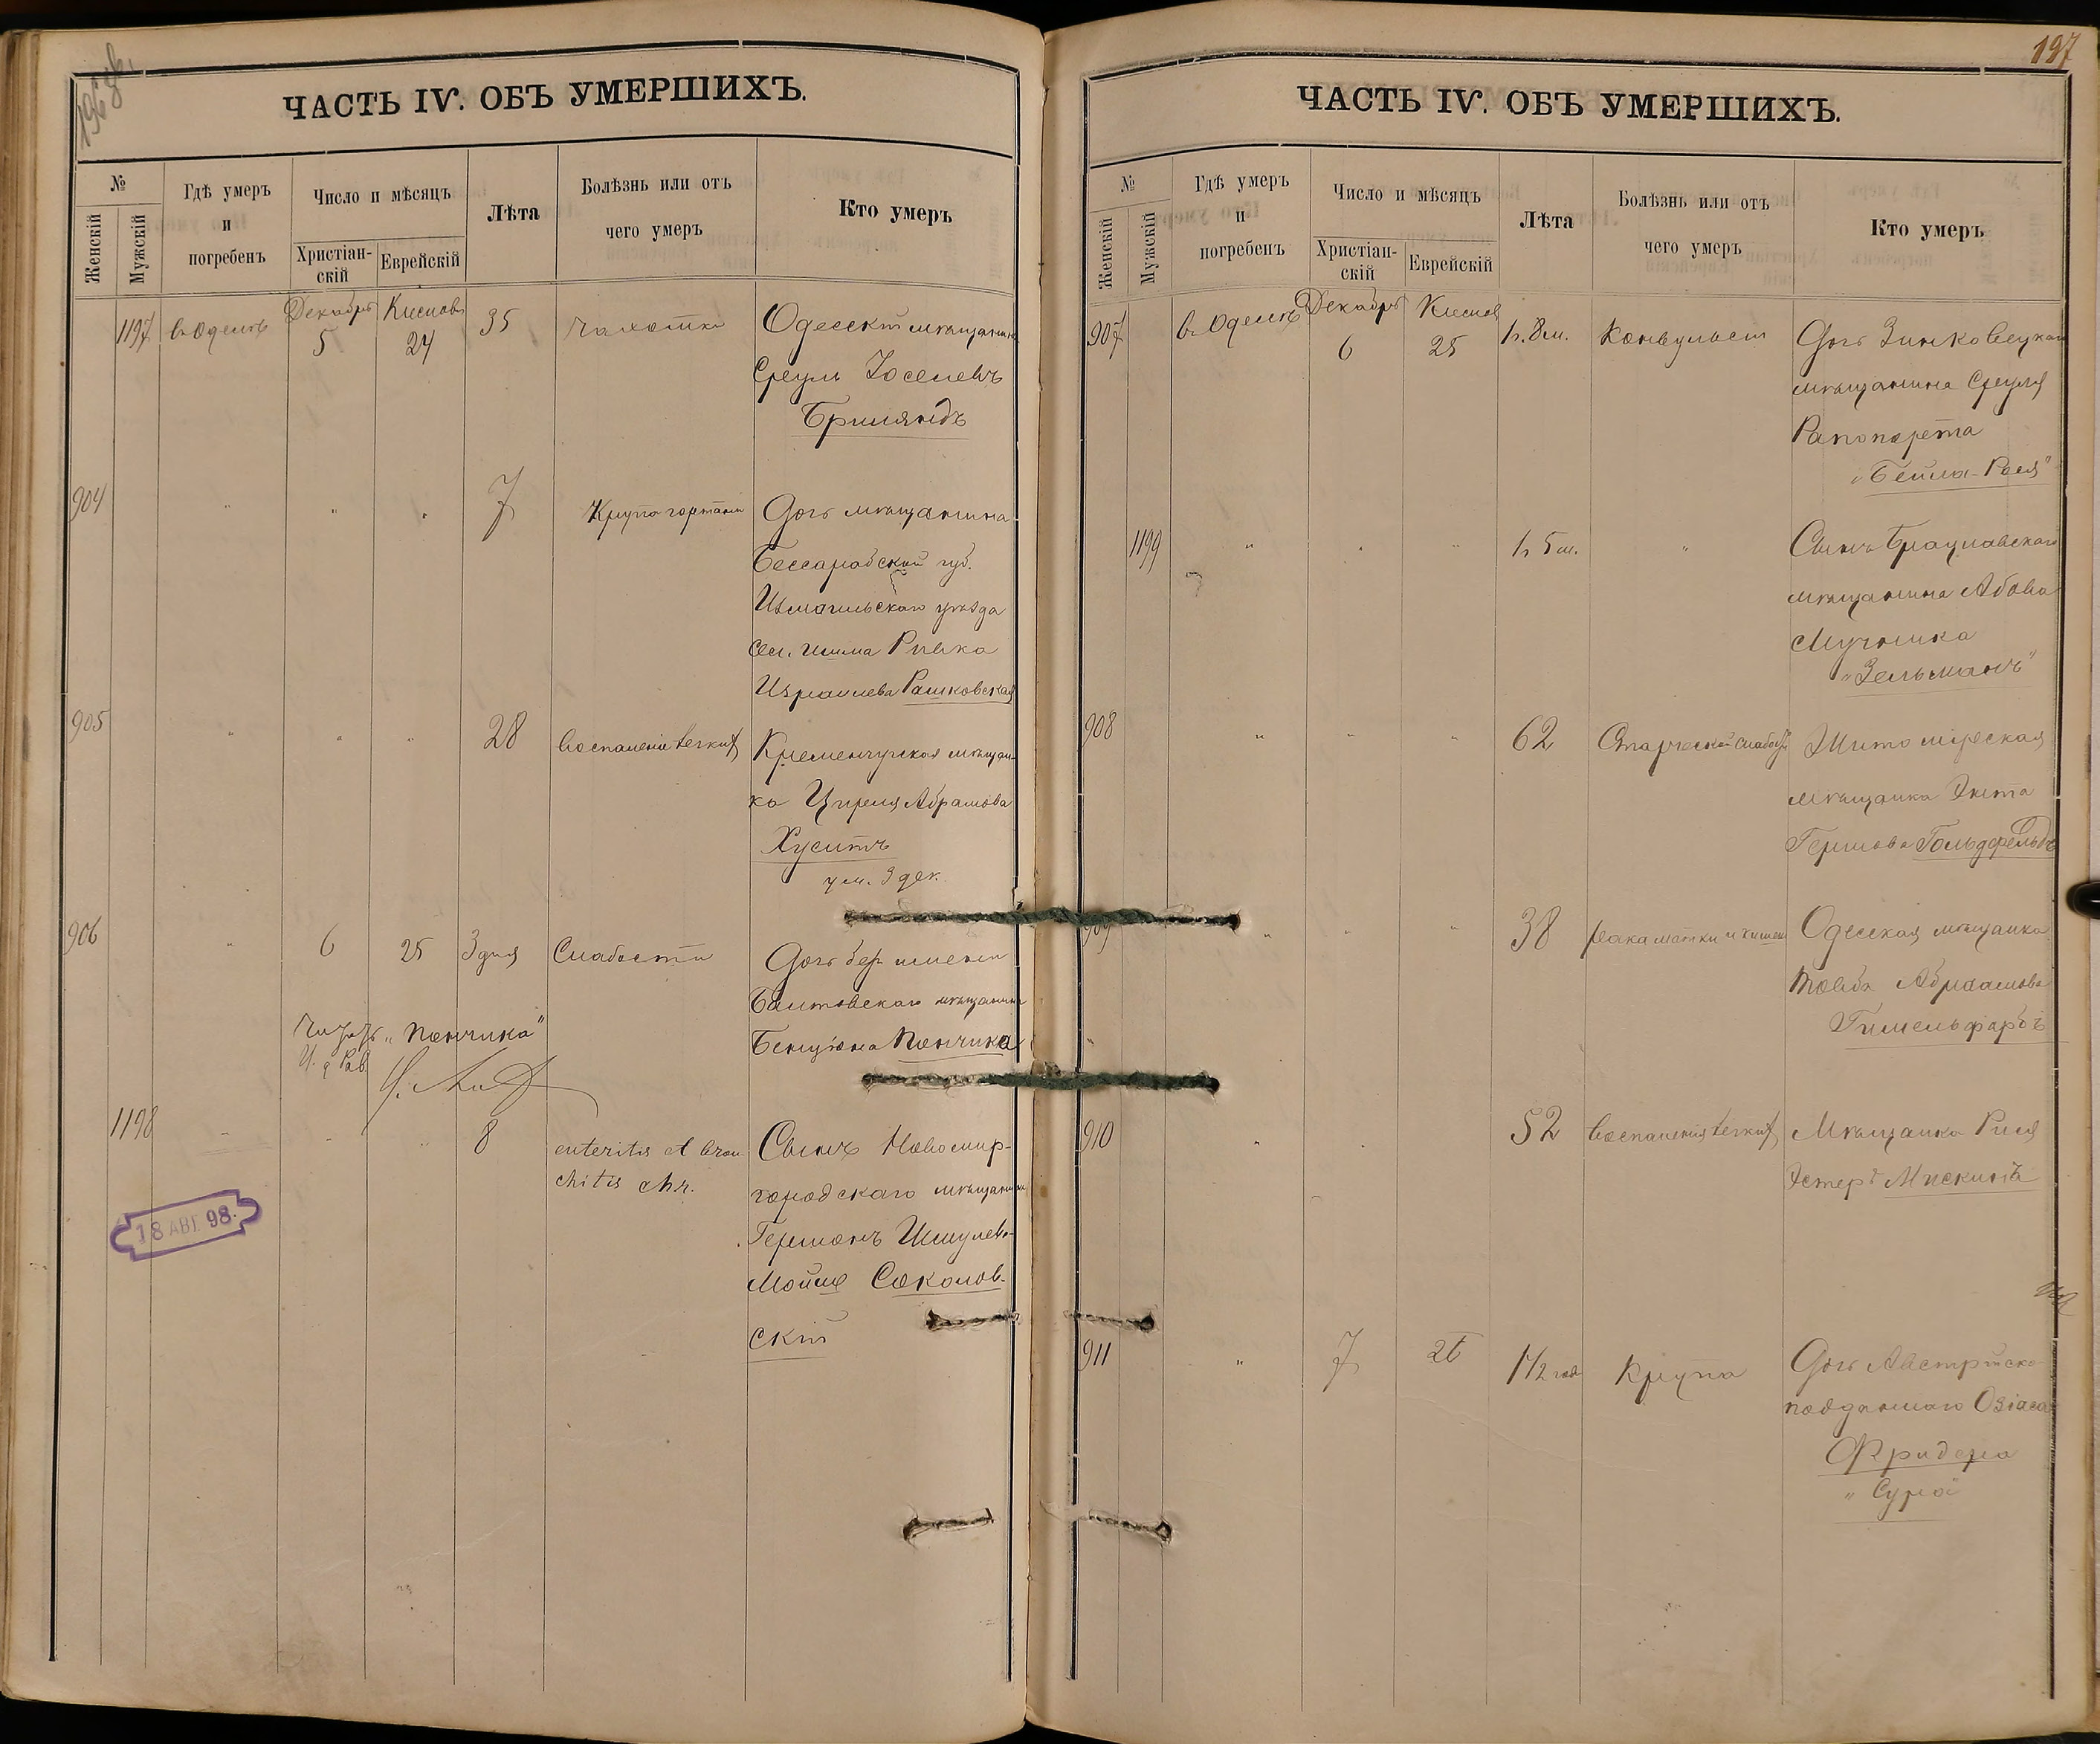 ЧАСТЬ IV. ОБЪ УМЕРШИХЪ.
№
Женскій
Мужскій
Гдѣ умеръ
и
погребенъ
Число и мѣсяцъ
Христіан-
скій
Еврейскій
Лѣта
Болѣзнь или отъ
чего умеръ
Кто умеръ
1197 въ Одессѣ Декабрь Кислевъ 35 чахотки Одесскій мѣщанинъ
5 24
Сруль Іоселевъ
Бриляндъ
904 " " " 7 Крупа гортани Дочь мѣщанина
Бессарабской губ.
Измаильскаго уѣзда
Ривка
Израилева Рашковская
905 " " " 28 Воспаленіе легкихъ Кременчугская мѣщан-
ка Циреля Абрамова
Хуситъ
ум. 3 дек.
906 " 6 25 3 дня Слабости Дочь без имени
Балтовскаго мѣщанина
Бенціона Пончика
"Пончика"
И. д. Рав.
1198 " " " 8 enteritis et bron-
chitis chr.
Сынъ Новомир-
городскаго мѣщанина
Гершонъ Шмулев-
Мойше Соколов-
скій
18 АВГ. 98.
197
ЧАСТЬ IV. ОБЪ УМЕРШИХЪ.
№
Женскій
Мужскій
Гдѣ умеръ
и
погребенъ
Число и мѣсяцъ
Христіан-
скій
Еврейскій
Лѣта
Болѣзнь или отъ
чего умеръ
Кто умеръ
907 въ Одессѣ Декабрь Кислев 1 г. 8 м. Конвульсіи Дочь Зинковецкаго
6 25
мѣщанина Сруля
Рапопорта
"Бейла-Рася"
1199 " " " 1 г 5 м. " Сынъ Брацлавскаго
мѣщанина Абова
Мучника
"Зельманъ"
908 " " " 62 Старческой слабости Житомірская
мѣщанка Энта
Гершова Гольдфельдъ
909 " " " 38 рака матки и кишек Одесская мѣщанка
Товба Абрамова
Гимельфарбъ
910 " " 52 Воспаленія легкихъ Мѣщанка Рися
Эстеръ Мискина
911 " 7 26 1 1/2 год Крупа Дочь Австрійско-
подданнаго Озіаса
Фридера
"Сура"